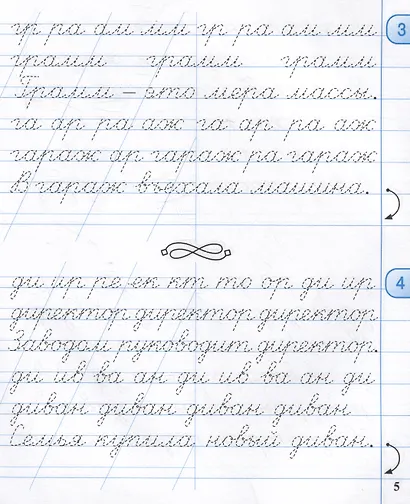 гр ра ам мм гр ра ам мм
3
грамм грамм грамм
Грамм – это мера массы.
га ар ра аж га ар ра аж
гараж ар гараж ра гараж
В гараж въехала машина.
ди ир ре ек кт то ор ди ир
4
директор директор директор
Заводом руководит директор.
ди ив ва ан ди ив ва ан ди
диван диван диван диван
Семья купила новый диван.
5